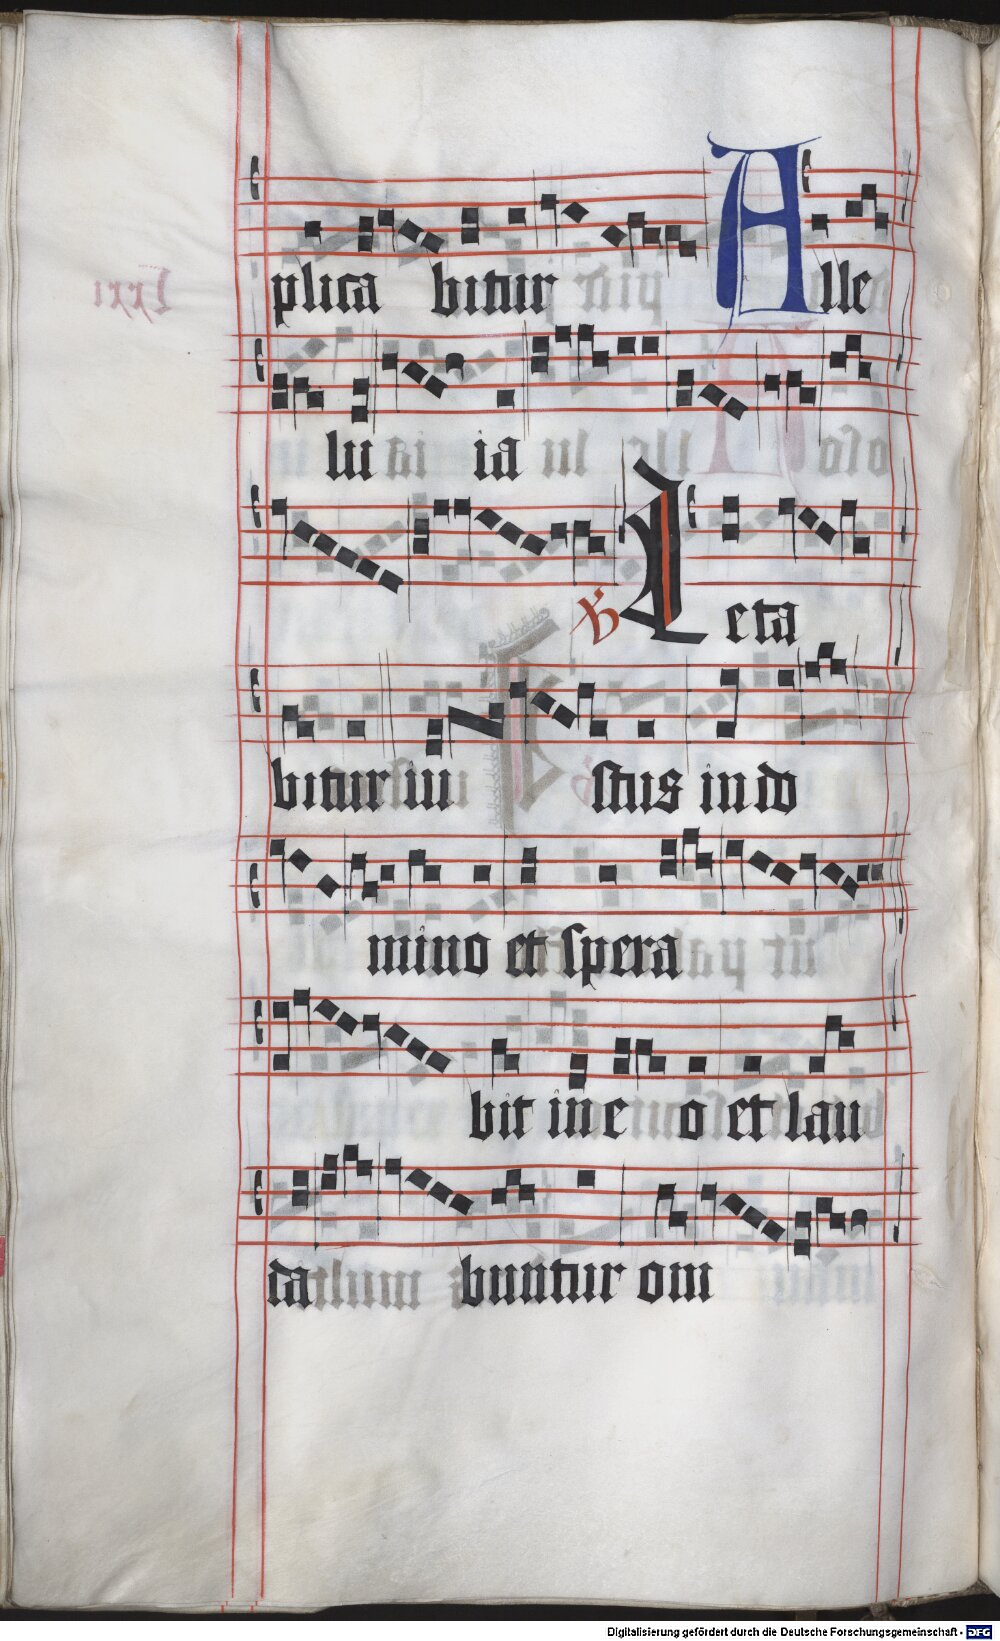 plica bitur Alle
lu ia
℣ Leta
bitur iu stus in do
mino et spera
bit in e o et lau
da buntur om
Digitalisierung gefördert durch die Deutsche Forschungsgemeinschaft - DFG